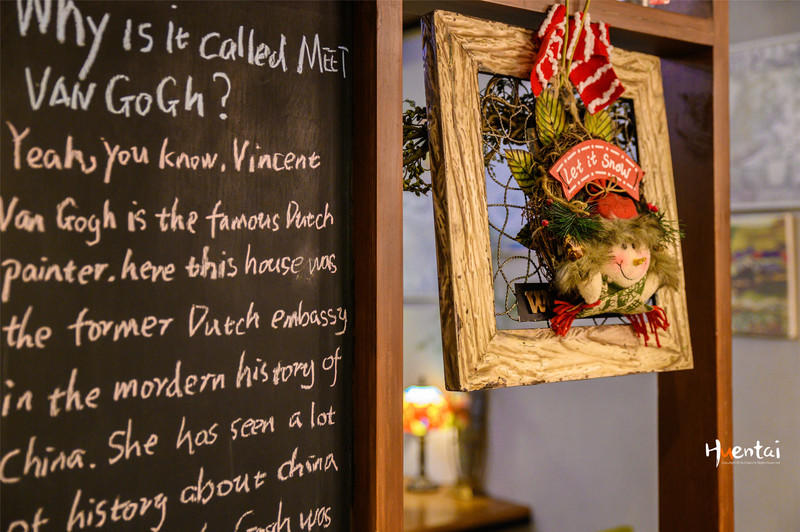 Why is it called MEET
VAN GoGh?
Yeah, you know, Vincent
Van Gogh is the famous Dutch
painter. here this house was
the former Dutch embassy
in the mordern history of
China. She has seen a lot
of history about china
Gogh was
Let it Snow
W
Huentai